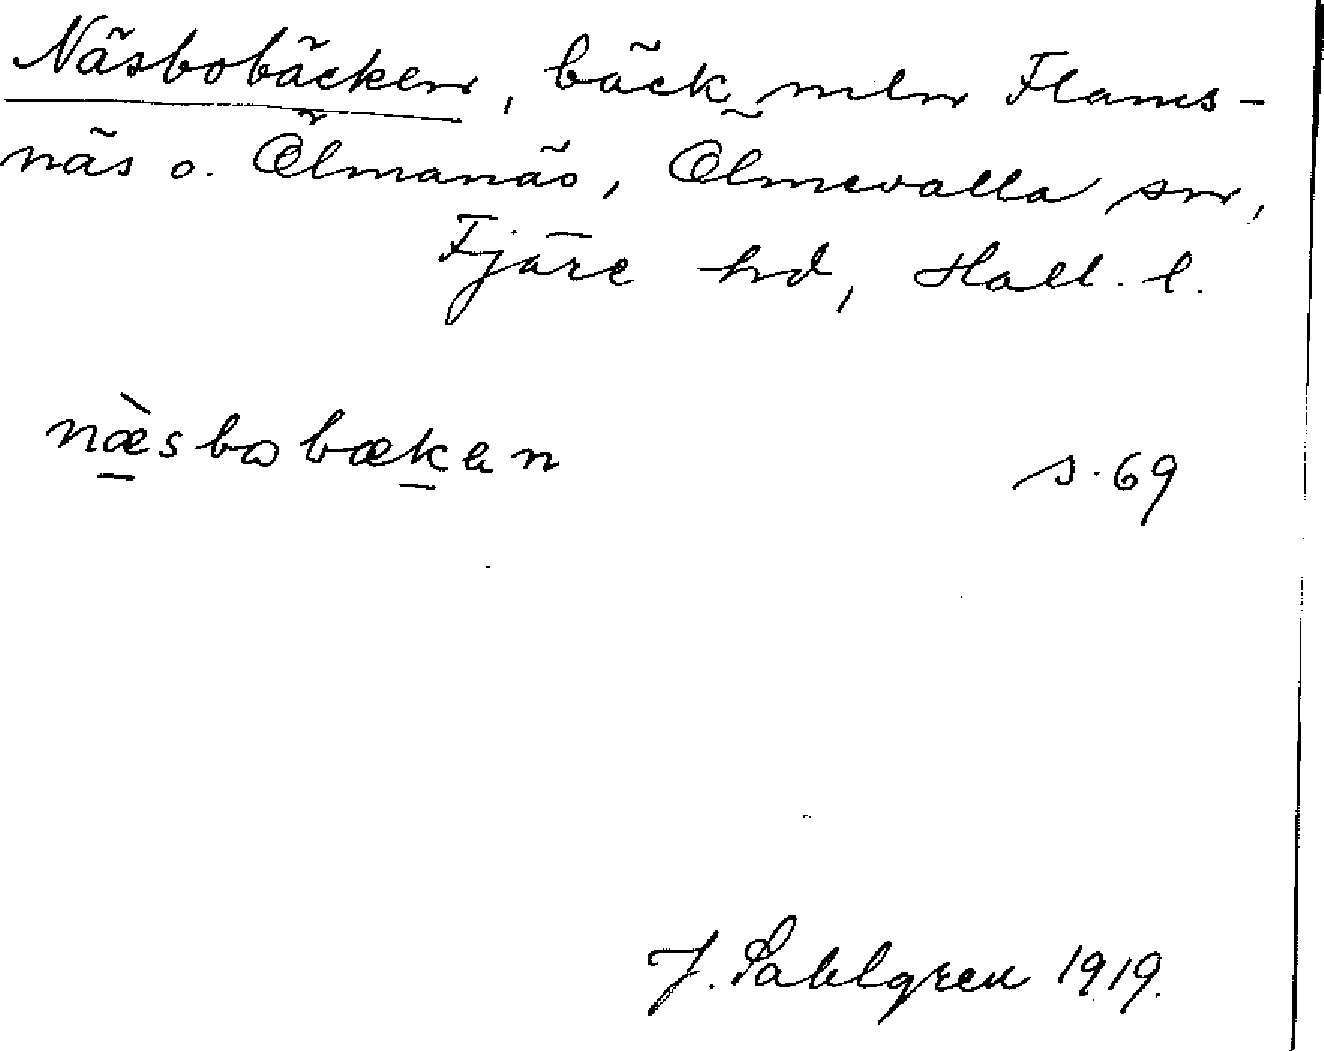 Näsbobäcken, bäck mln Flams-
näs o. Ölmanäs, Ölmevalla sn,
Fjäre hd, Hall. l.
næ̀sbobækan s. 69
J. Sahlgren 1919.